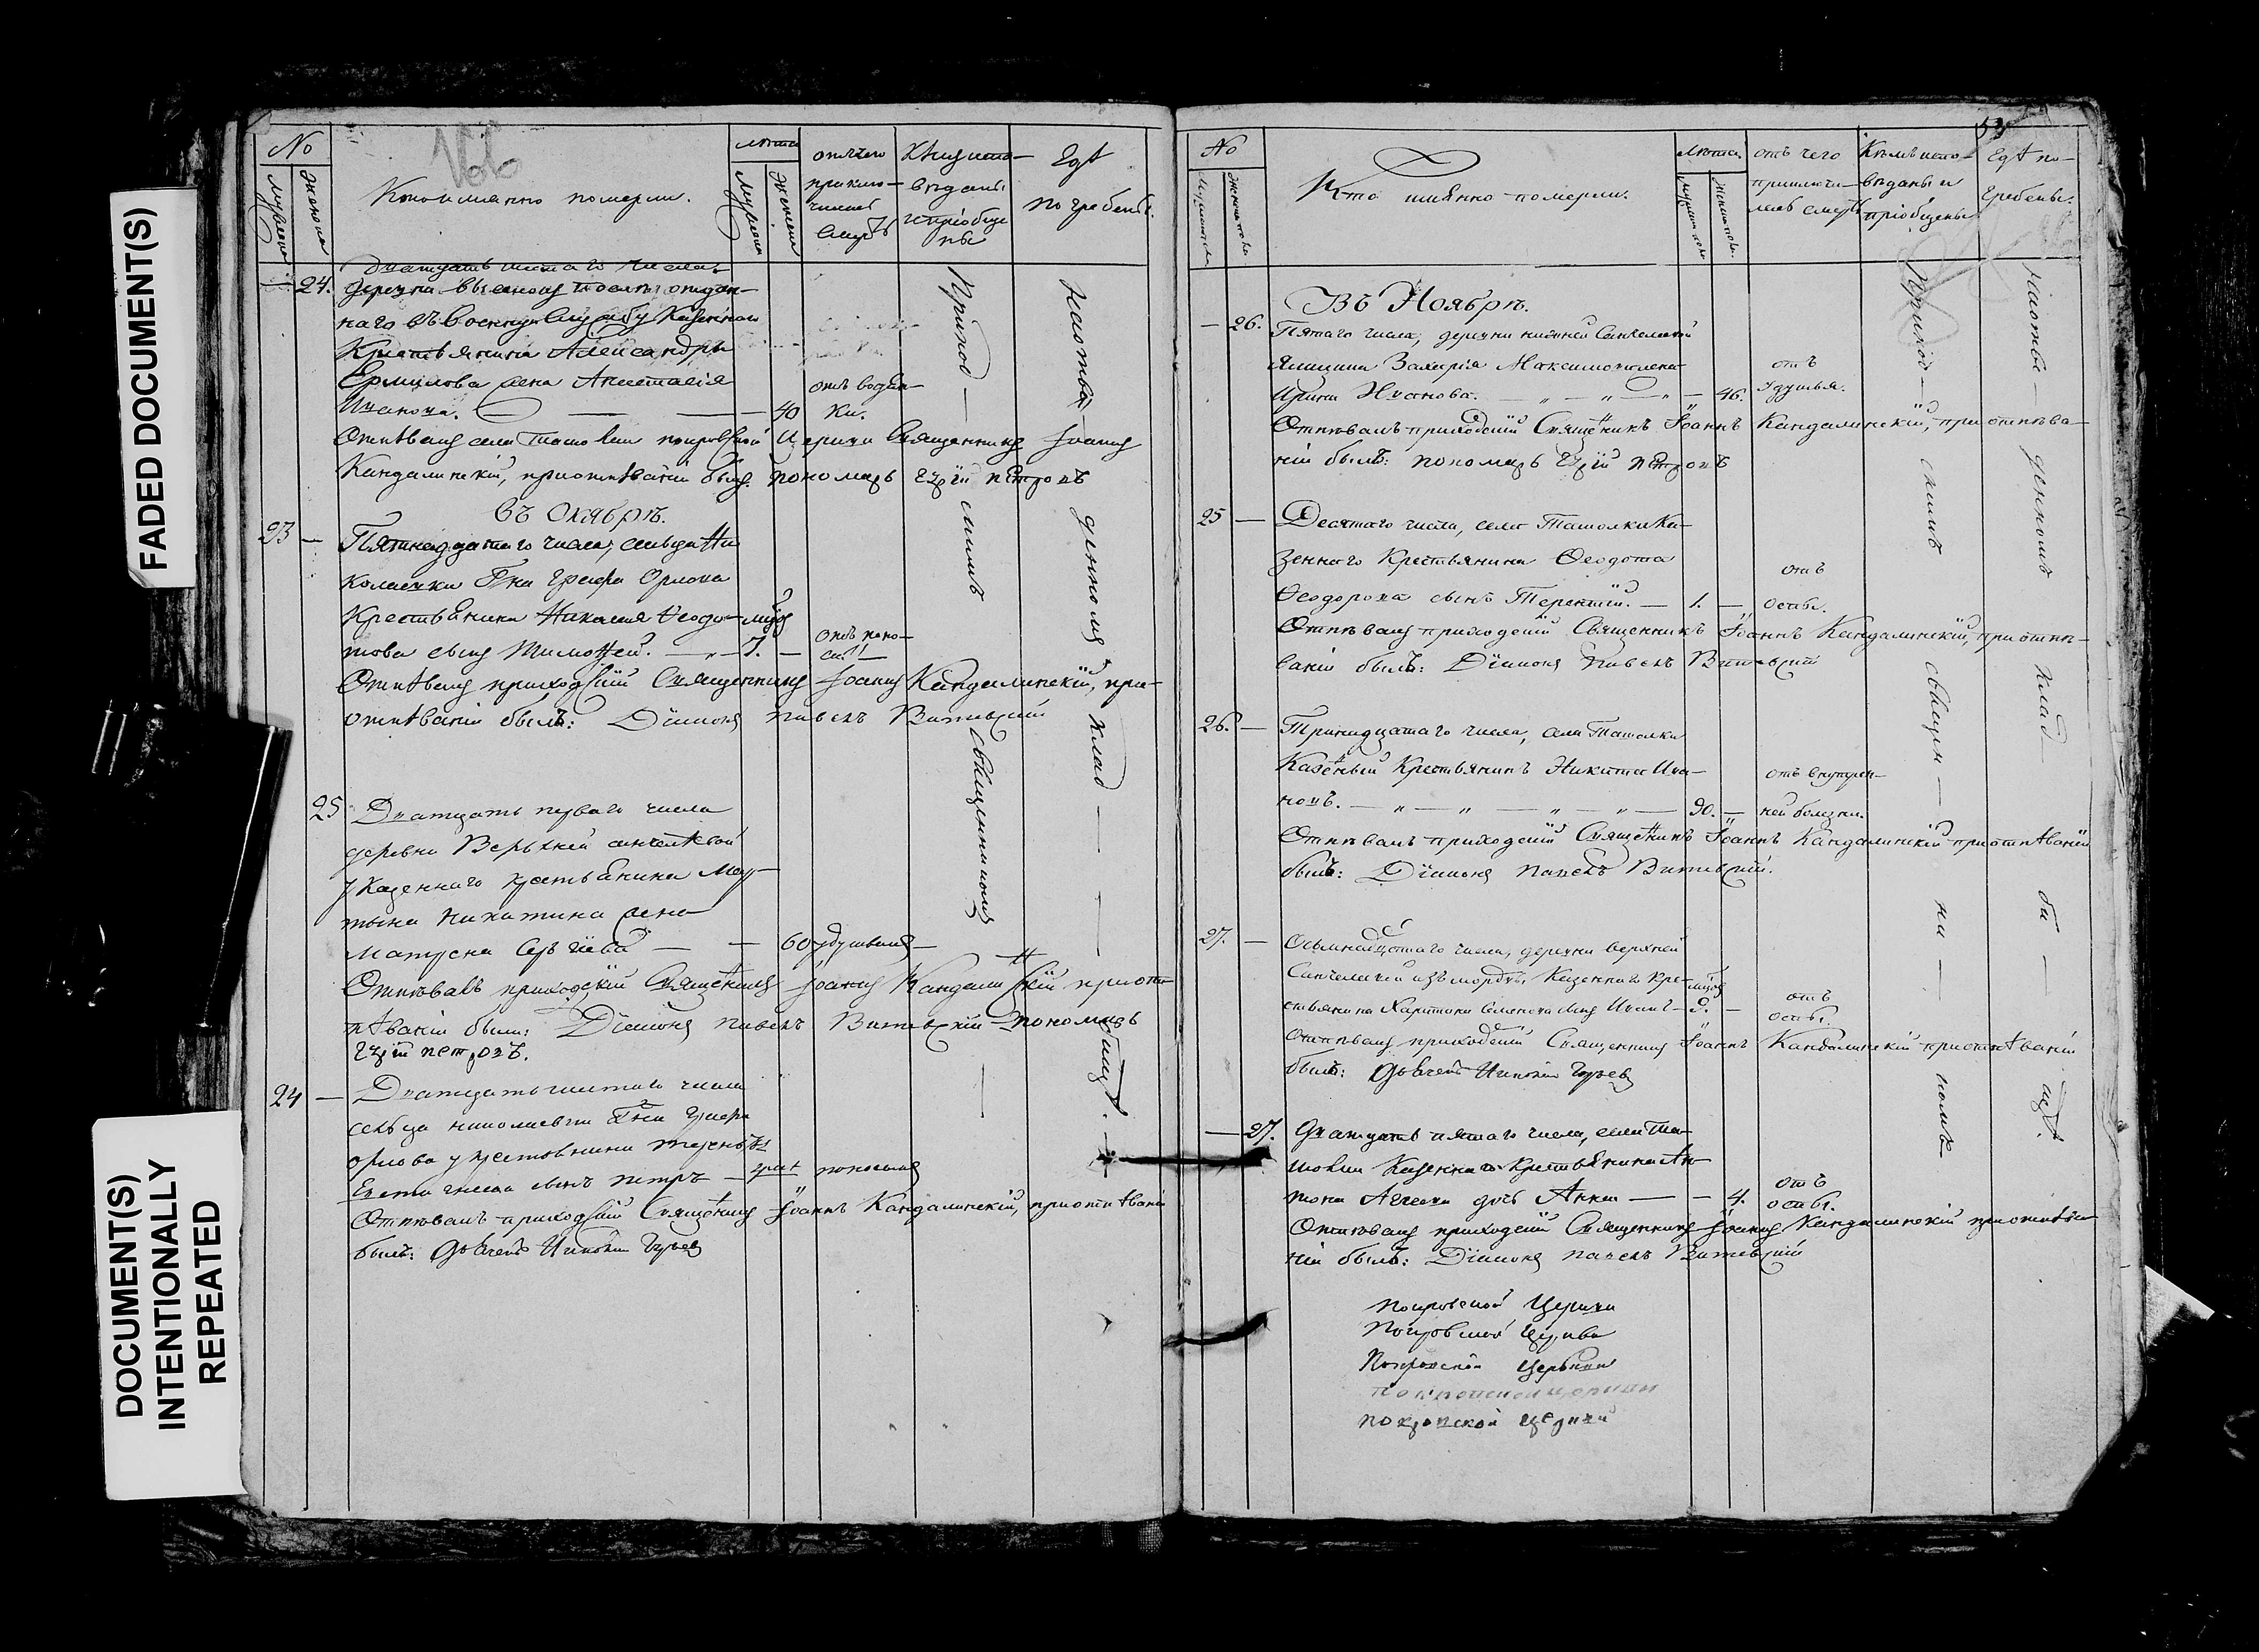 FADED DOCUMENT(S)
DOCUMENT(S)
INTENTIONALLY
REPEATED
166
№
Мужеска
Женска
Кто имянно померли.
Лѣта
Мужеска
Женска
отъ чего
приклю-
чилась
смерть
Кѣмъ испо-
вѣданы
и пріобще
ны
Гдѣ
погребены.
Дватцать шестаго числа
— 24. деревни
наго въ военную службу Казеннаго
Крестьянина Александры
Ермилова жена Анастасія
Иванова. — 40
отъ водян-
ки.
Отпѣвалъ села Ташолки покровской Церкви Священникъ Іоаннъ
Кандалинскій, при отпѣваніи былъ пономарь Егорій петровъ
Въ Октябрѣ.
23 — Пятнадцатаго числа, сельца Ни
колаевки Гна Графа Орлова
Крестьянина Николая Ѳеодо-
това сынъ Тимоѳей. — 7. —
отъ поно-
са.
Отпѣвалъ приходскій Священникъ Іоаннъ Кандалинскій, при
отпѣваніи былъ: Діаконъ Павелъ Витевскій
25 Дватцать перваго числа
деревни Верхней
у Казеннаго крестьянина Мар-
тына Никитина жена
Матрена Сергіева — — 60 удушья
Отпѣвалъ приходскій Священникъ Іоаннъ Кандалинскій при от
пѣваніи были: Діаконъ Павелъ Витевскій пономарь
Егорій петровъ.
24 — Дватцать шестаго числа
сельца николаевки Гна Графа
Орлова у крестьянина
сынъ Петръ — поносомъ
Отпѣвалъ приходскій Священникъ Іоаннъ Кандалинскій, при отпѣваніи
былъ: Дьячекъ Гурьевъ
Приход — скимъ священникомъ
На отва денномъ клад — бищѣ.
53
№
Мужеска
Женска
Кто имянно померли.
Лѣта.
отъ чего
приключи-
лась смерть
Кѣмъ испо-
вѣданы и
пріобщены
Гдѣ по-
гребены.
Въ Ноябрѣ.
— 26. Пятаго числа, деревни нижней Санчелеевой
Захарія Максимова жена
Ирина Иванова. — 46.
отъ
Удушья.
Отпѣвалъ приходскій Священникъ Іоаннъ Кандалинскій, при отпѣва-
ніи былъ: пономарь Егорій петровъ
25 — Десятаго числа, села Ташолки Ка-
зеннаго Крестьянина Ѳеодота
Ѳеодорова сынъ Терентій. — 1. —
отъ
оспы.
Отпѣвалъ приходскій Священникъ Іоаннъ Кандалинскій, при отпѣ-
ваніи былъ: Діаконъ Павелъ Витевскій
26. — Тринадцатаго числа, села Ташолки
Казеный Крестьянинъ Никита Ива-
новъ. — 90. —
отъ внутрен-
ней болезни.
Отпѣвалъ приходскій Священикъ Іоаннъ Кандалинскій при отпѣваніи
былъ: Діаконъ Павелъ Витевскій.
27. — Осьмнадцатаго числа, деревни верхней
Санчелеевой изъ мордвы Казеннаго Кре-
стьянина Харитона сынъ —
отъ
оспы.
Отпѣвалъ приходскій Священникъ Іоаннъ Кандалинскій при отпѣваніи
былъ: Дьячекъ Гурьевъ
— 27. Двадцать пятаго числа, села Та-
шолки Казеннаго Крестьянина Ан-
тона дочь Анна — — 4.
отъ
оспы.
Отпѣвалъ приходскій Священникъ Іоаннъ Кандалинскій при отпѣва
ніи былъ: Діаконъ Павелъ Витевскій
Приход — скимъ священ — ни — комъ
На отва — денномъ клад — би — щѣ.
Покровской Церкви
Покровской Церкви
Покровской Церькви
Покровской церкви
покровской церкви